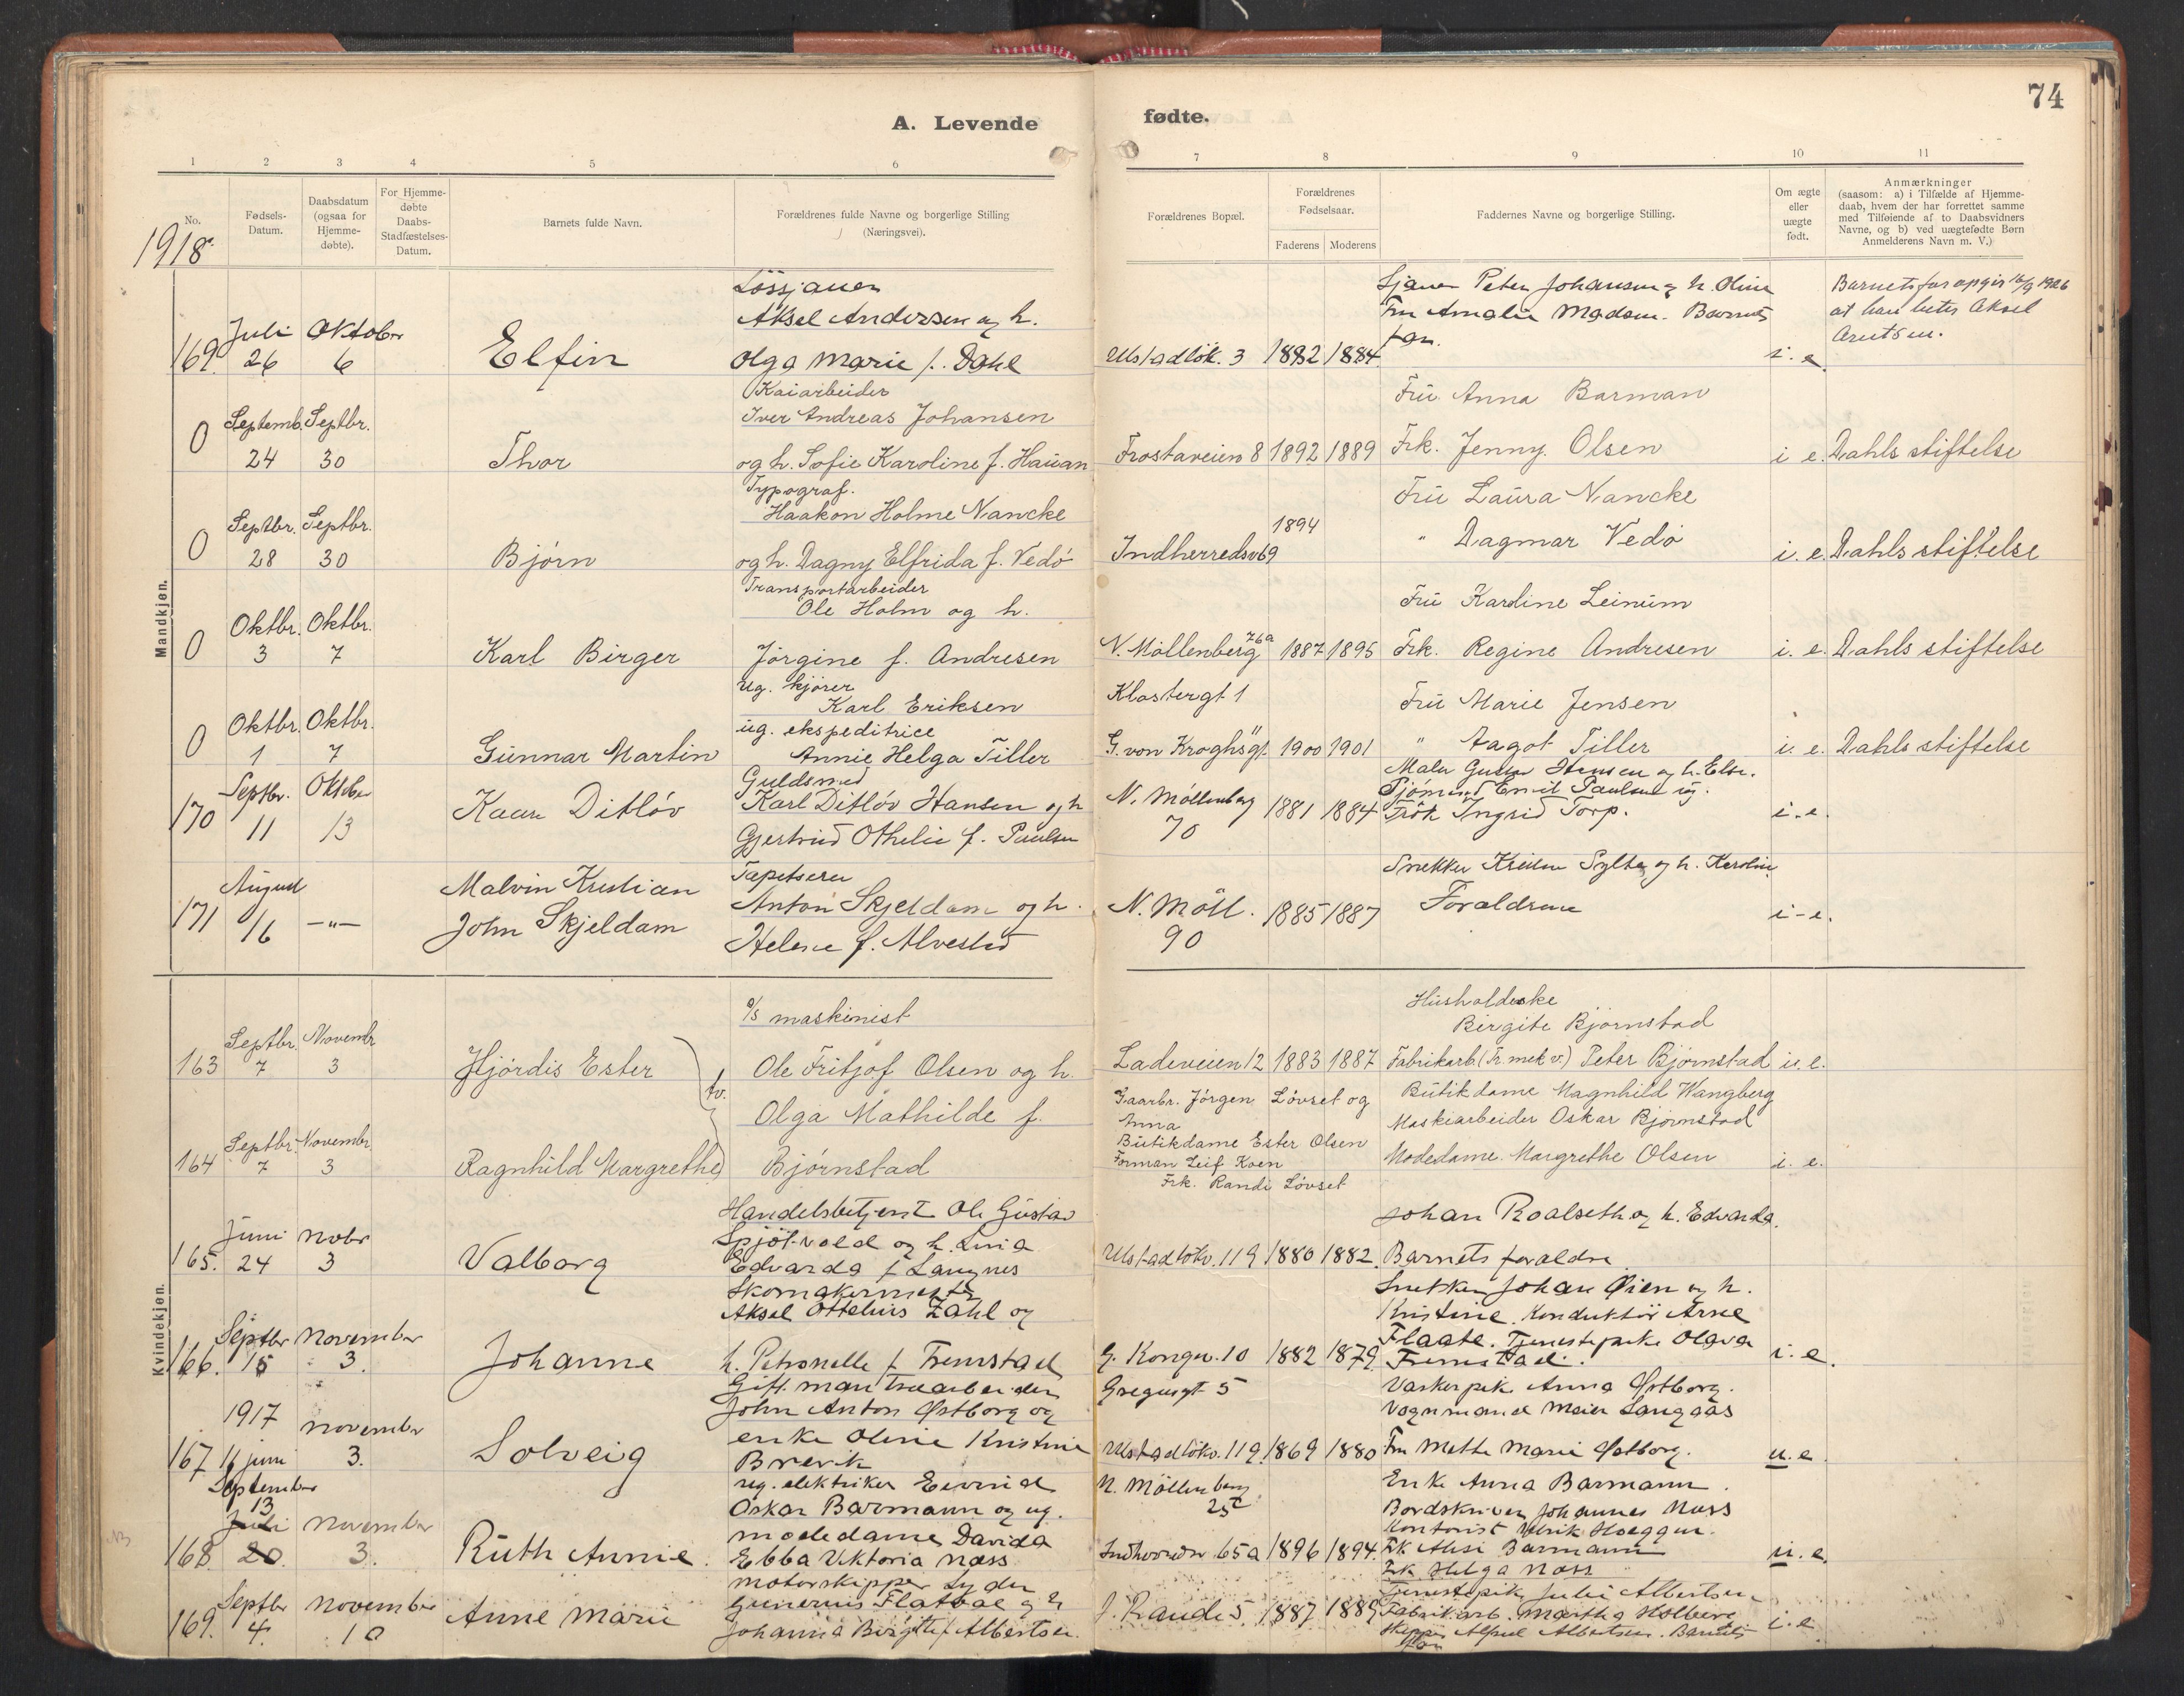 74
A. Levende fødte.
1 2 3 4 5 6 7 8 9 10 11
No.
Fødsels-Datum.
Daabsdatum (ogsaa for Hjemme-døbte).
For Hjemme-døbte Daabs-Stadfæstelses-Datum.
Barnets fulde Navn.
Forældrenes fulde Navne og borgerlige Stilling (Næringsvei).
Forældrenes Bopæl.
Forældrenes Fødselsaar.
Faderens Moderens
Faddernes Navne og borgerlige Stilling.
Om ægte eller uægte født.
Anmærkninger
(saasom: a) i Tilfælde af Hjemme-
daab, hvem der har forrettet samme
med Tilføiende af to Daabsvidners
Navne, og b) ved uægtefødte Børn
Anmelderens Navn m. V.)
1918
Mandkjøn.
169 Juli 26 Oktober 6
Elfin
Løssjauer
Aksel Andersen og h.
Olga Marie f. Dahl
Ulstadløk. 3 1882 1884
Sjauer Peter Johansen og h. Oline
Fru Amalie Madsen. Barnets
far.
i. e.
Barnets far opgir 16/9 1926
at han heter Aksel
Arntsen.
0 Septemb. 24 Septbr. 30
Thor
Kaiarbeider
Iver Andreas Johansen
og h. Sofie Karoline f. Hauan
Frostaveien 8 1892 1889
Fru Anna Barman
Frk. Jenny Olsen
i e. Dahls stiftelse
0 Septbr. 28 Septbr. 30
Bjørn
Typograf.
Haakon Holme Nancke
og h. Dagny Elfrida f. Vedø
Indherredsv69 1894
Fru Laura Nancke
" Dagmar Vedø
i. e. Dahls stiftelse
0 Oktbr. 3 Oktbr. 7
Karl Birger
Transportarbeider
Ole Holm og h.
Jørgine f. Andresen
N. Møllenberg 76a 1887 1895
Fru Karoline Leinum
Frk. Regine Andresen
i. e. Dahls stiftelse
0 Oktbr. 1 Oktbr. 7
Gunnar Martin
ug. kjører
Karl Eriksen
ug. ekspeditrice
Annie Helga Tiller
Klostergt 1
G. von Kroghsgt. 11 1900 1901
Fru Marie Jensen
" Aagot Tiller
u. e. Dahls stiftelse
170 Septbr. 11 Oktober 13
Kaare Ditløv
Guldsmed
Karl Ditløv Hansen og h
Gjertrud Othelie f. Paulsen
N. Møllenberg
70
1881 1884
Maler Gustav Hansen og h. Elise.
Sjømand Emil Paulsen og.
Frøk Ingrid Torp.
i. e.
171 August 1/6 —"—
Malvin Kristian
John Skjeldam
Tapetserer
Anton Skjeldam og h.
Helene f. Alvestad
N. Møll.
90
1885 1887
Snekker Sylte og h. Karoline
Forældrene
i-e.
Kvindekjøn.
163 Septbr. 7 Novembr 3
Hjørdis Ester
tv.
d/s maskinist
Ole Fritjof Olsen og h.
Olga Mathilde f.
Bjørnstad
Ladeveien 12 1883 1887
Husholderske
Birgite Bjørnstad
Fabrikarb. (Tr. mek v.) Peter Bjørnstad i. e.
Gaarbr. Jørgen Løvset og
Anna
Butikdame Ester Olsen
Forman Leif Koen
Frk. Randi Løvset
Butikdame Magnhild Wangberg
Maskiarbeider Oskar Bjørnstad
Modedame Margrethe Olsen
i. e.
164 Septbr. 7 Novembr. 3
Ragnhild Margrethe
165. Juni 24 Nobr 3
Valborg
Handelsbetjent Ole Gustav
Spjøtvold og h. Lina
Edvarda f Langnes
Ulstadløkv. 119 1880 1882.
Johan Roalseth og h. Edvarda.
Barnets foraldre
166. Septbr 15 November 3.
Johanne
Skomakermester
Aksel Ottelius Zahl og
h. Petronelle f Tremstad
G. Kongev. 10 1882 1879
Snekker Johan Øien og h.
Kristine. Konduktør Arne
Flaate. Tjenestepike Olava
Fremstad.
i. e.
167 1917 16 juni November 3.
Solveig
Gift man træarbeider
John Anton Østborg og
enke Oline Kristine
Brevik
Gregusgt 5
Ulstadløkv. 119. 1869 1880
Vaskerpik Anna Østborg.
Vognmand Meier Langaas
Fru Mette Marie Østborg.
u. e.
168 September 13 Juli 20. November 3.
Ruth Annie.
ug. elektriker Eivind
Oskar Barmann og ug.
modedame Davida
Ebba Viktoria Næss
N. Møllenberg
25c
Indherredsv 65a 1896 1894.
Enke Anna Barmann.
Bordskriver Johannes Næss
Kontorist Ulrik Hoeggen.
Frk Alise Barmann
Frk Helga Næss
u. e.
169. Septbr 4. November 10
Anne Marie
motorskipper Lyder
Gunerius Flatval og h
Johanna Birgitte f Albertsen.
J. Randi 5. 1887 1889
Tjenestepik Julie Albertsen
Fabrikarb. Martha Holberg
Skipper Alfred Albertsen. Barnets
far
i. e